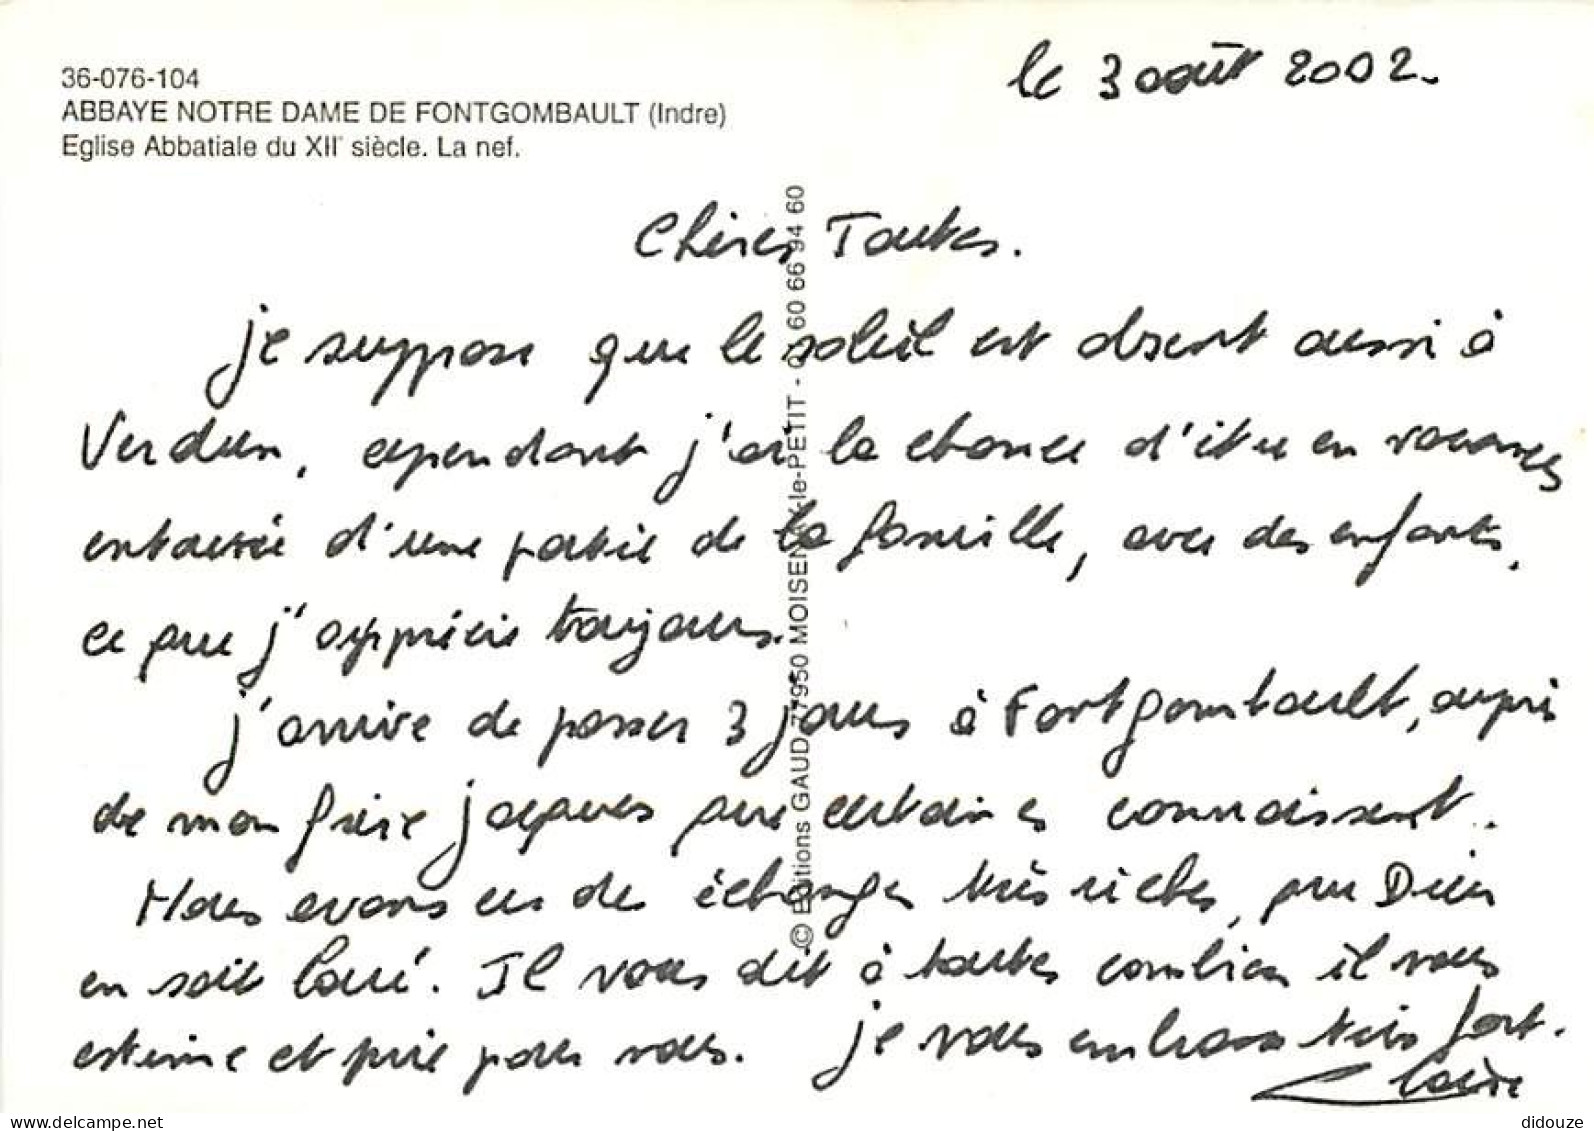 le 3 août 2002.
36-076-104
ABBAYE NOTRE DAME DE FONTGOMBAULT (Indre)
Eglise Abbatiale du XIIe siècle. La nef.
Chères Toutes.
je suppose que le soleil est absent aussi à
Verdun, cependant j'ai la chance d'être en vacances
entourée d'une partie de la famille, avec des enfants,
ce que j'apprécie toujours.
j'arrive de passer 3 jours à Fontgombault, auprès
de mon frère jacques que certaines connaissent.
Nous avons eu des échanges très riches, que Dieu
en soit loué. Il vous dit à toutes combien il vous
estime et prie pour vous. je vous embrasse très fort.
Claire
© Editions GAUD 77950 MOISENAY-le-PETIT - 60 66 94 60
didouze